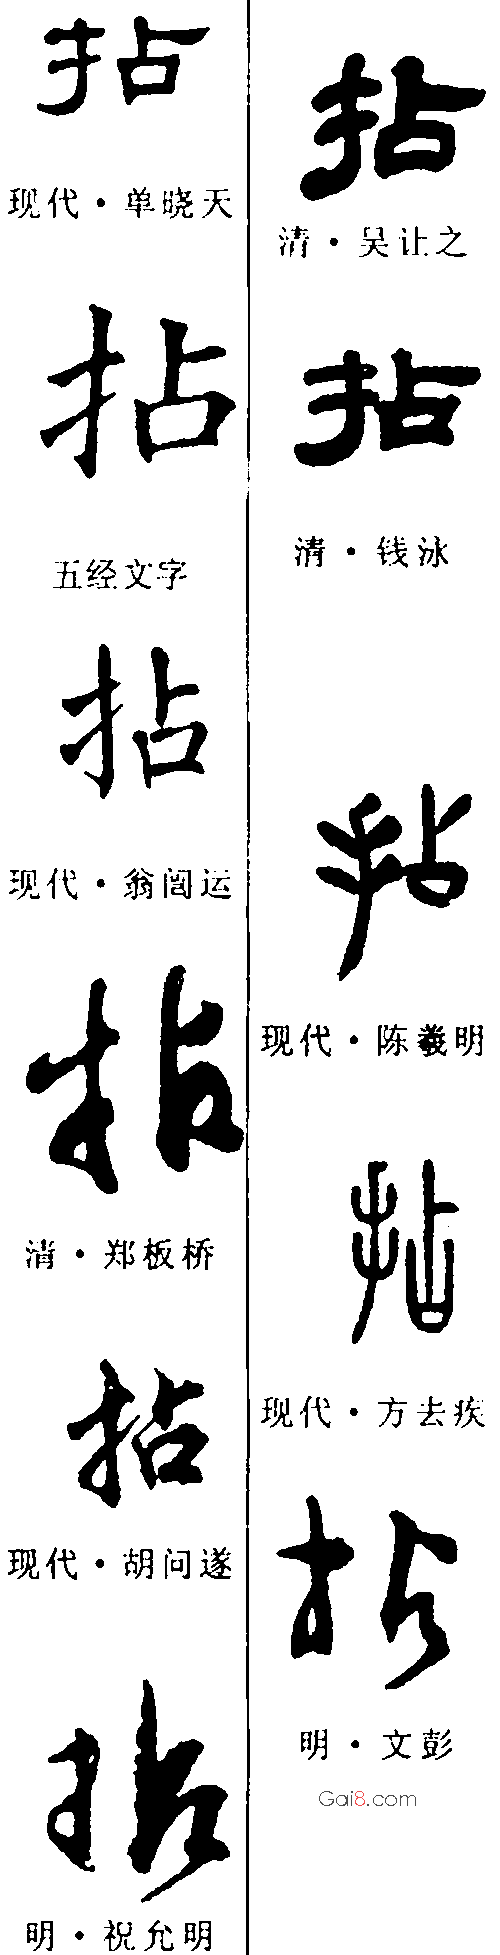 拈
现代·单晓天
拈
五经文字
拈
现代·翁闿运
拈
清·郑板桥
拈
现代·胡问遂
拈
明·祝允明
拈
清·吴让之
拈
清·钱泳
拈
现代·陈羲明
拈
现代·方去疾
拈
明·文彭
Gai8.com